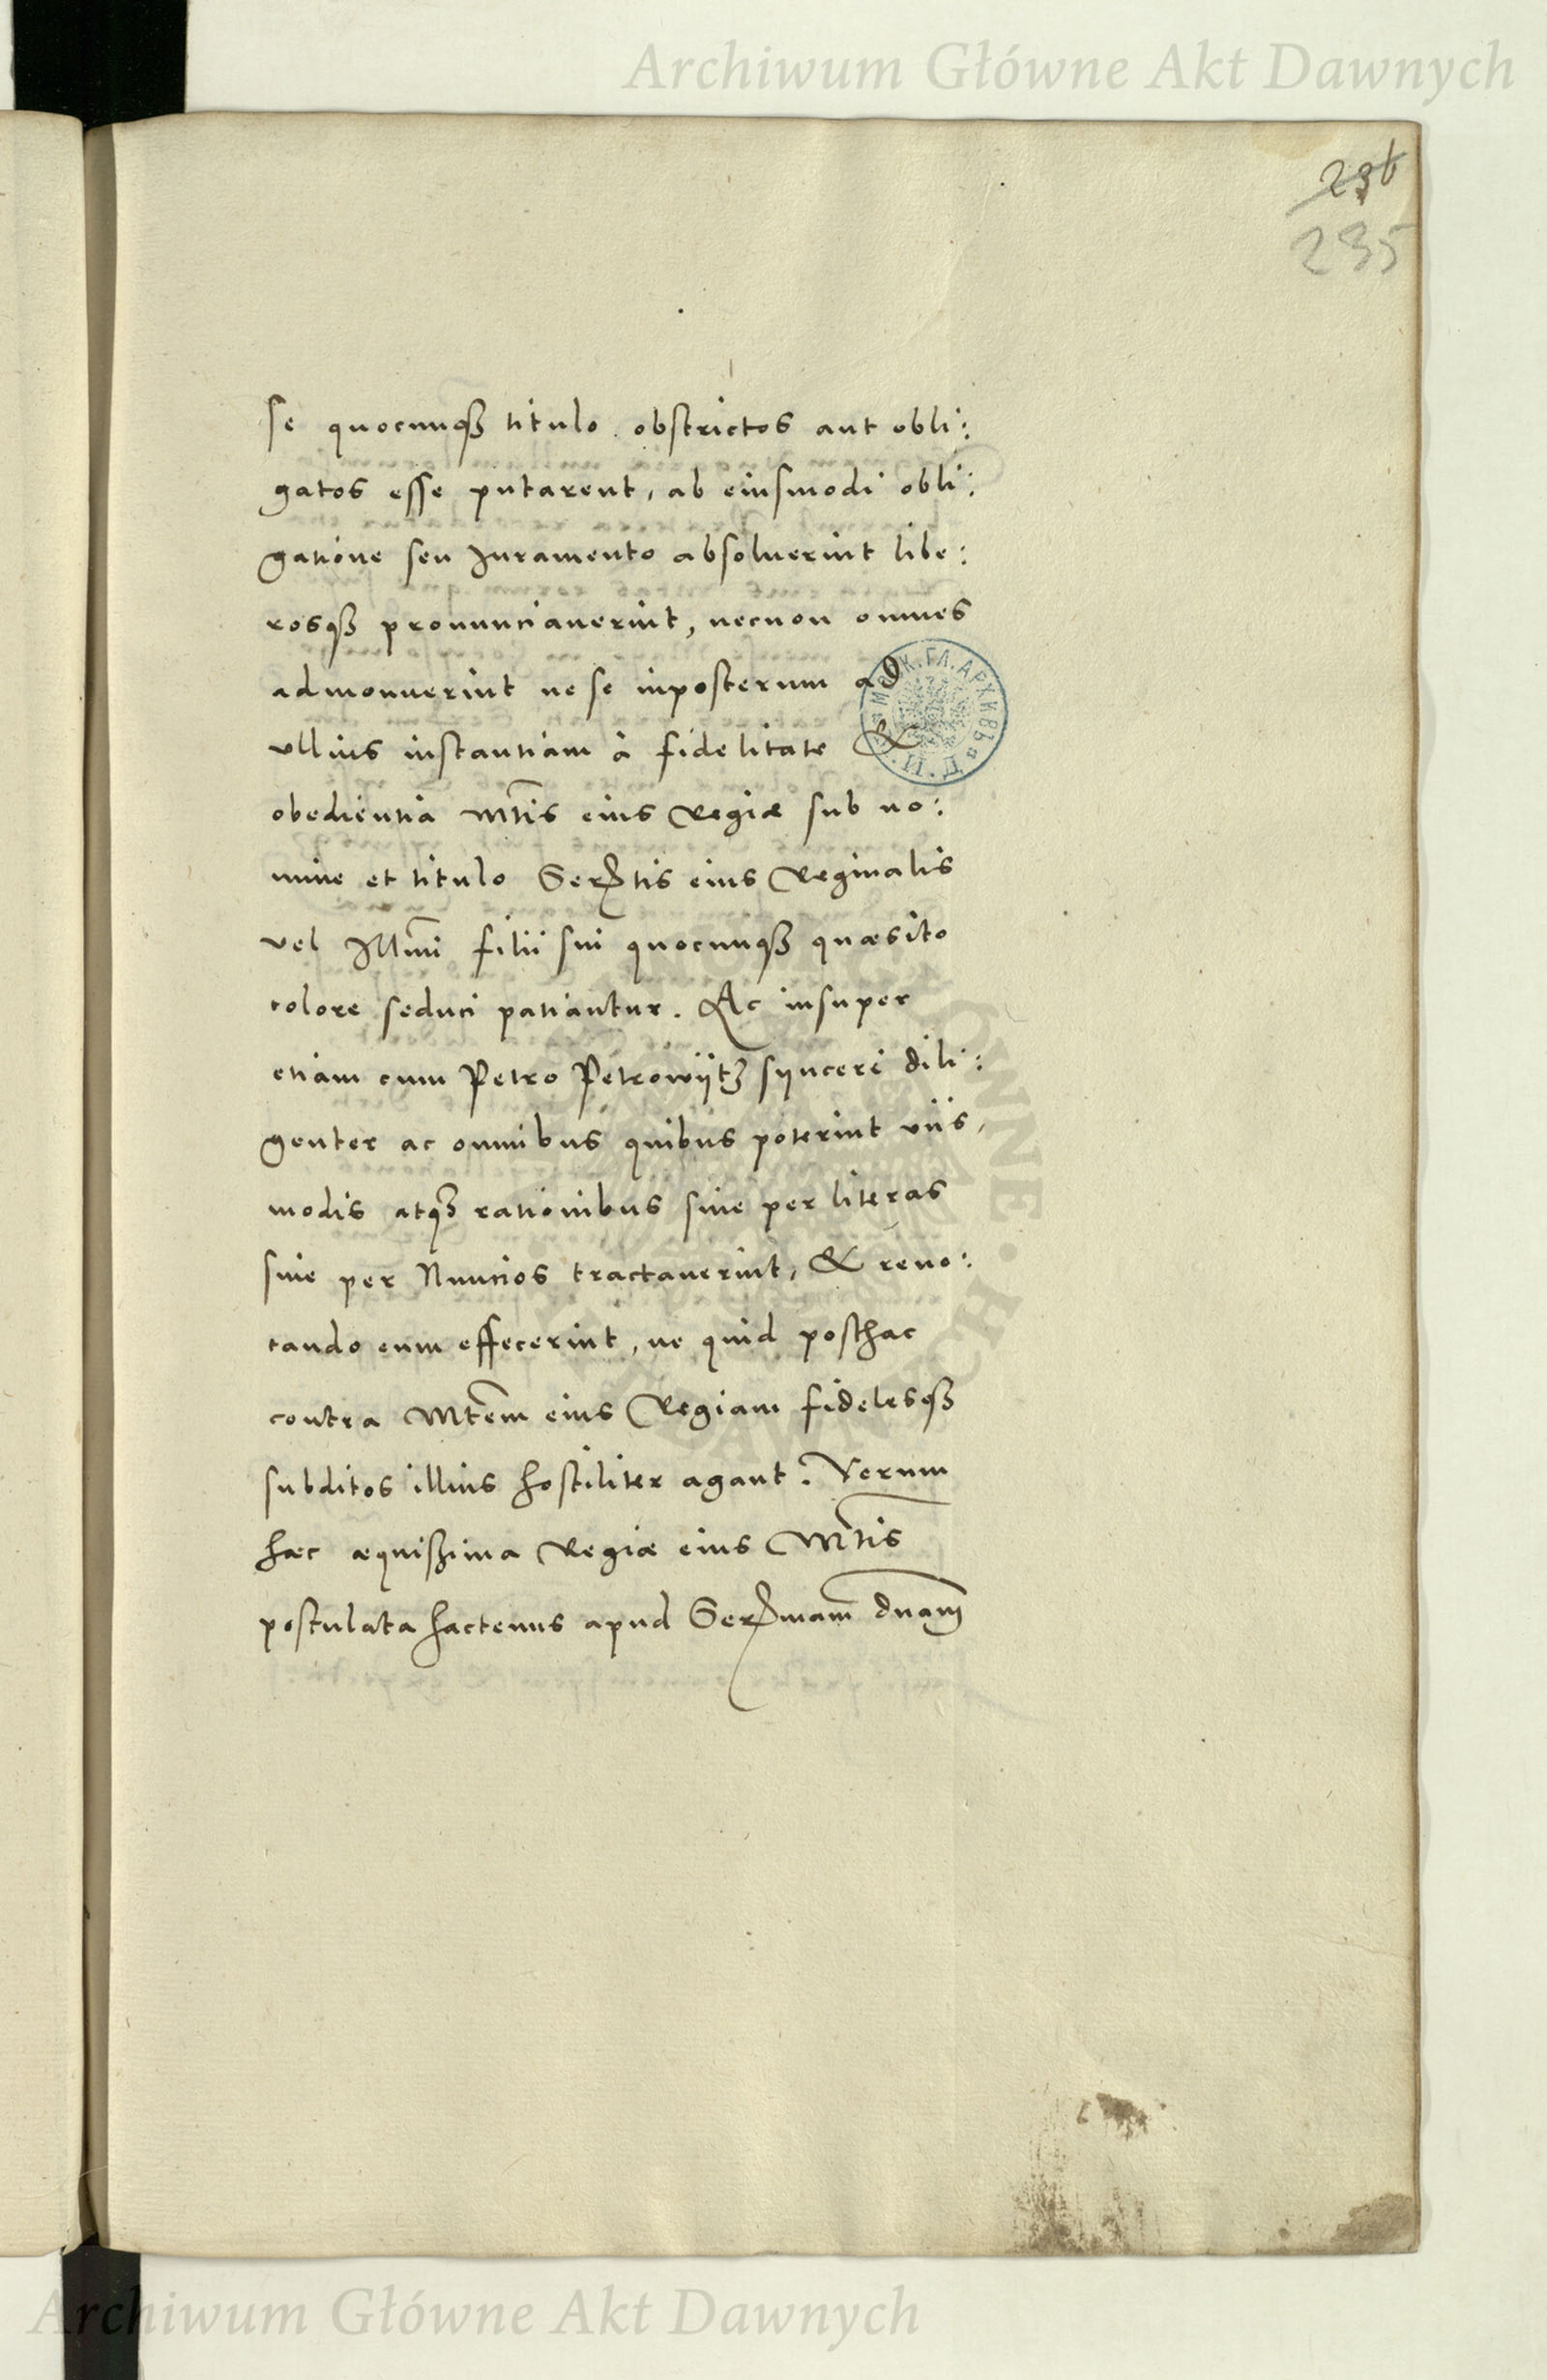 Archiwum Główne Akt Dawnych
236
235
se quocunq₃ titulo obstrictos aut obli:
gatos esse putarent, ab eiusmodi obli:
gatione seu Iuramento absoluerint libe:
rosq₃ pronunciauerint, necnon omnes
admonuerint ne se inposterum ad
ullius instantiam à fidelitate &
obedientia Mtis eius Regiæ sub no:
mine et titulo Sertis eius Reginalis
vel Illmi filii sui quocunq₃ quæsito
colore seduci patiantur. Ac insuper
etiam cum Petro Petrowijtz synceri dili:
genter ac omnibus quibus poterint viis,
modis atq₃ rationibus siue per literas
siue per Nuncios tractauerint, & reuo:
cando eum effecerint, ne quid posthac
contra Mtem eius Regiam fidelesq₃
subditos illius hostiliter agant. Verum
hæc æquissima Regiæ eius Mtis
postulata hactenus apud Sermam dnam
Archiwum Główne Akt Dawnych